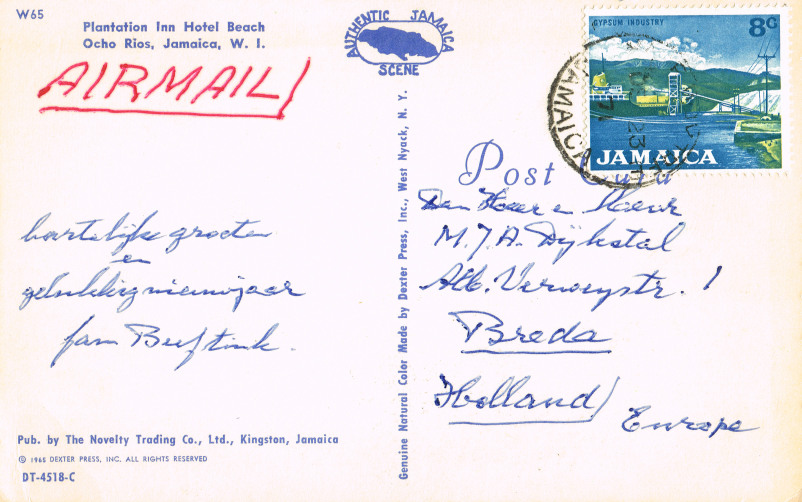 W65
Plantation Inn Hotel Beach
Ocho Rios, Jamaica, W. I.
AIRMAIL
AUTHENTIC JAMAICA
SCENE
GYPSUM INDUSTRY
8c
JAMAICA
JAMAICA
Post Card
hartelijke groeten
en
gelukkig nieuwjaar
fam Buftink.
Den Heer en Mevr
M.J.A. Dijkstal
Alb. Verweystr. 1
Breda
Holland
Europe
Genuine Natural Color Made by Dexter Press, Inc., West Nyack, N. Y.
Pub. by The Novelty Trading Co., Ltd., Kingston, Jamaica
© 1965 DEXTER PRESS, INC. ALL RIGHTS RESERVED
DT-4518-C